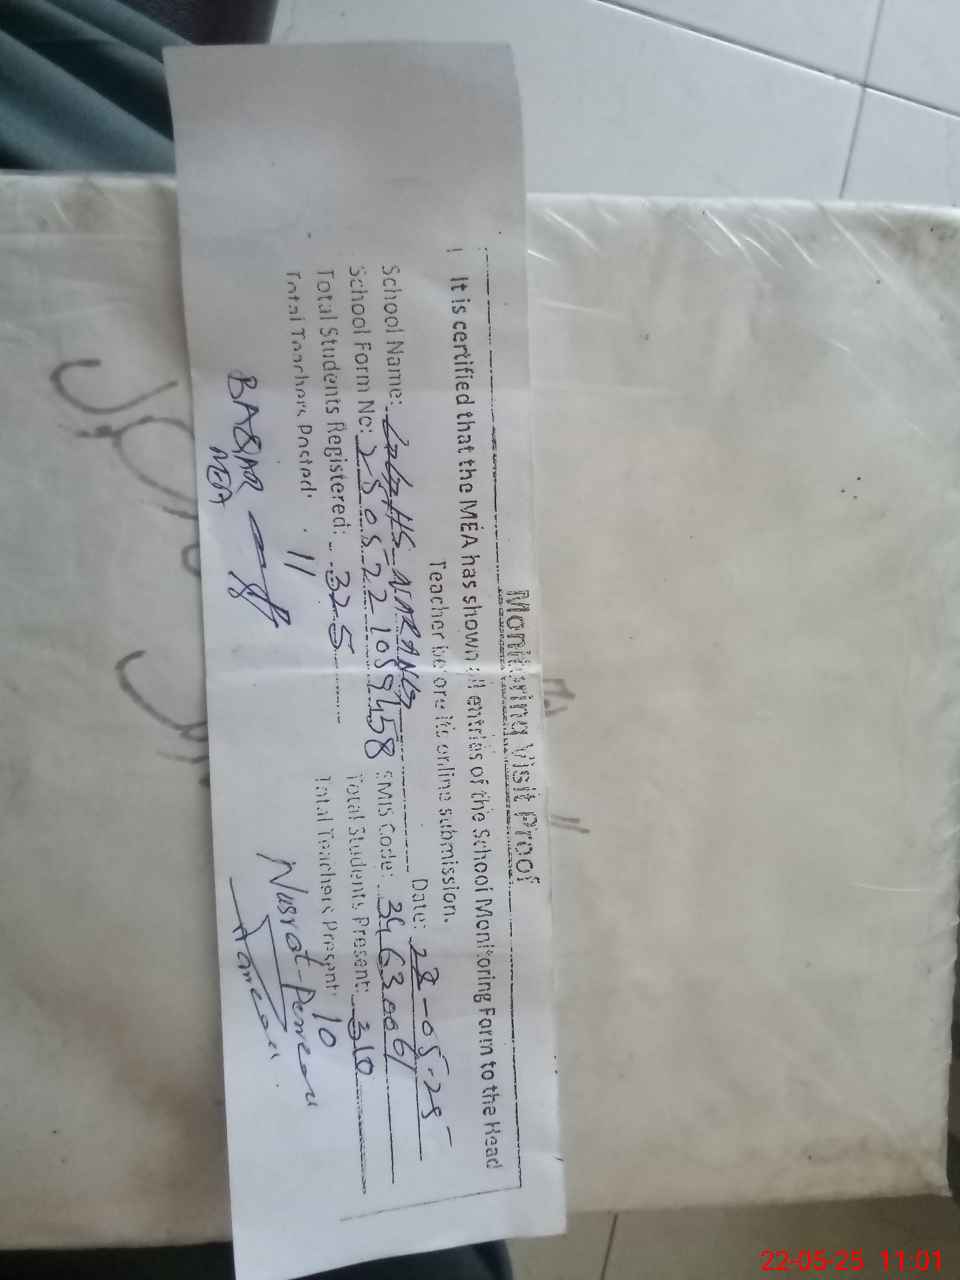 Monitoring Visit Proof
It is certified that the MEA has shown all entries of the School Monitoring Form to the Head
Teacher before its online submission.
School Name: HS NARANG Date: 23-05-25
School Form No: 2505221059458 EMIS Code: 39630061
Total Students Registered: 325 Total Students Present: 310
Total Teachers Posted: 11 Total Teachers Present: 10
BASHAR
MEA
Nusrat Perveen
22-05-25 11:01